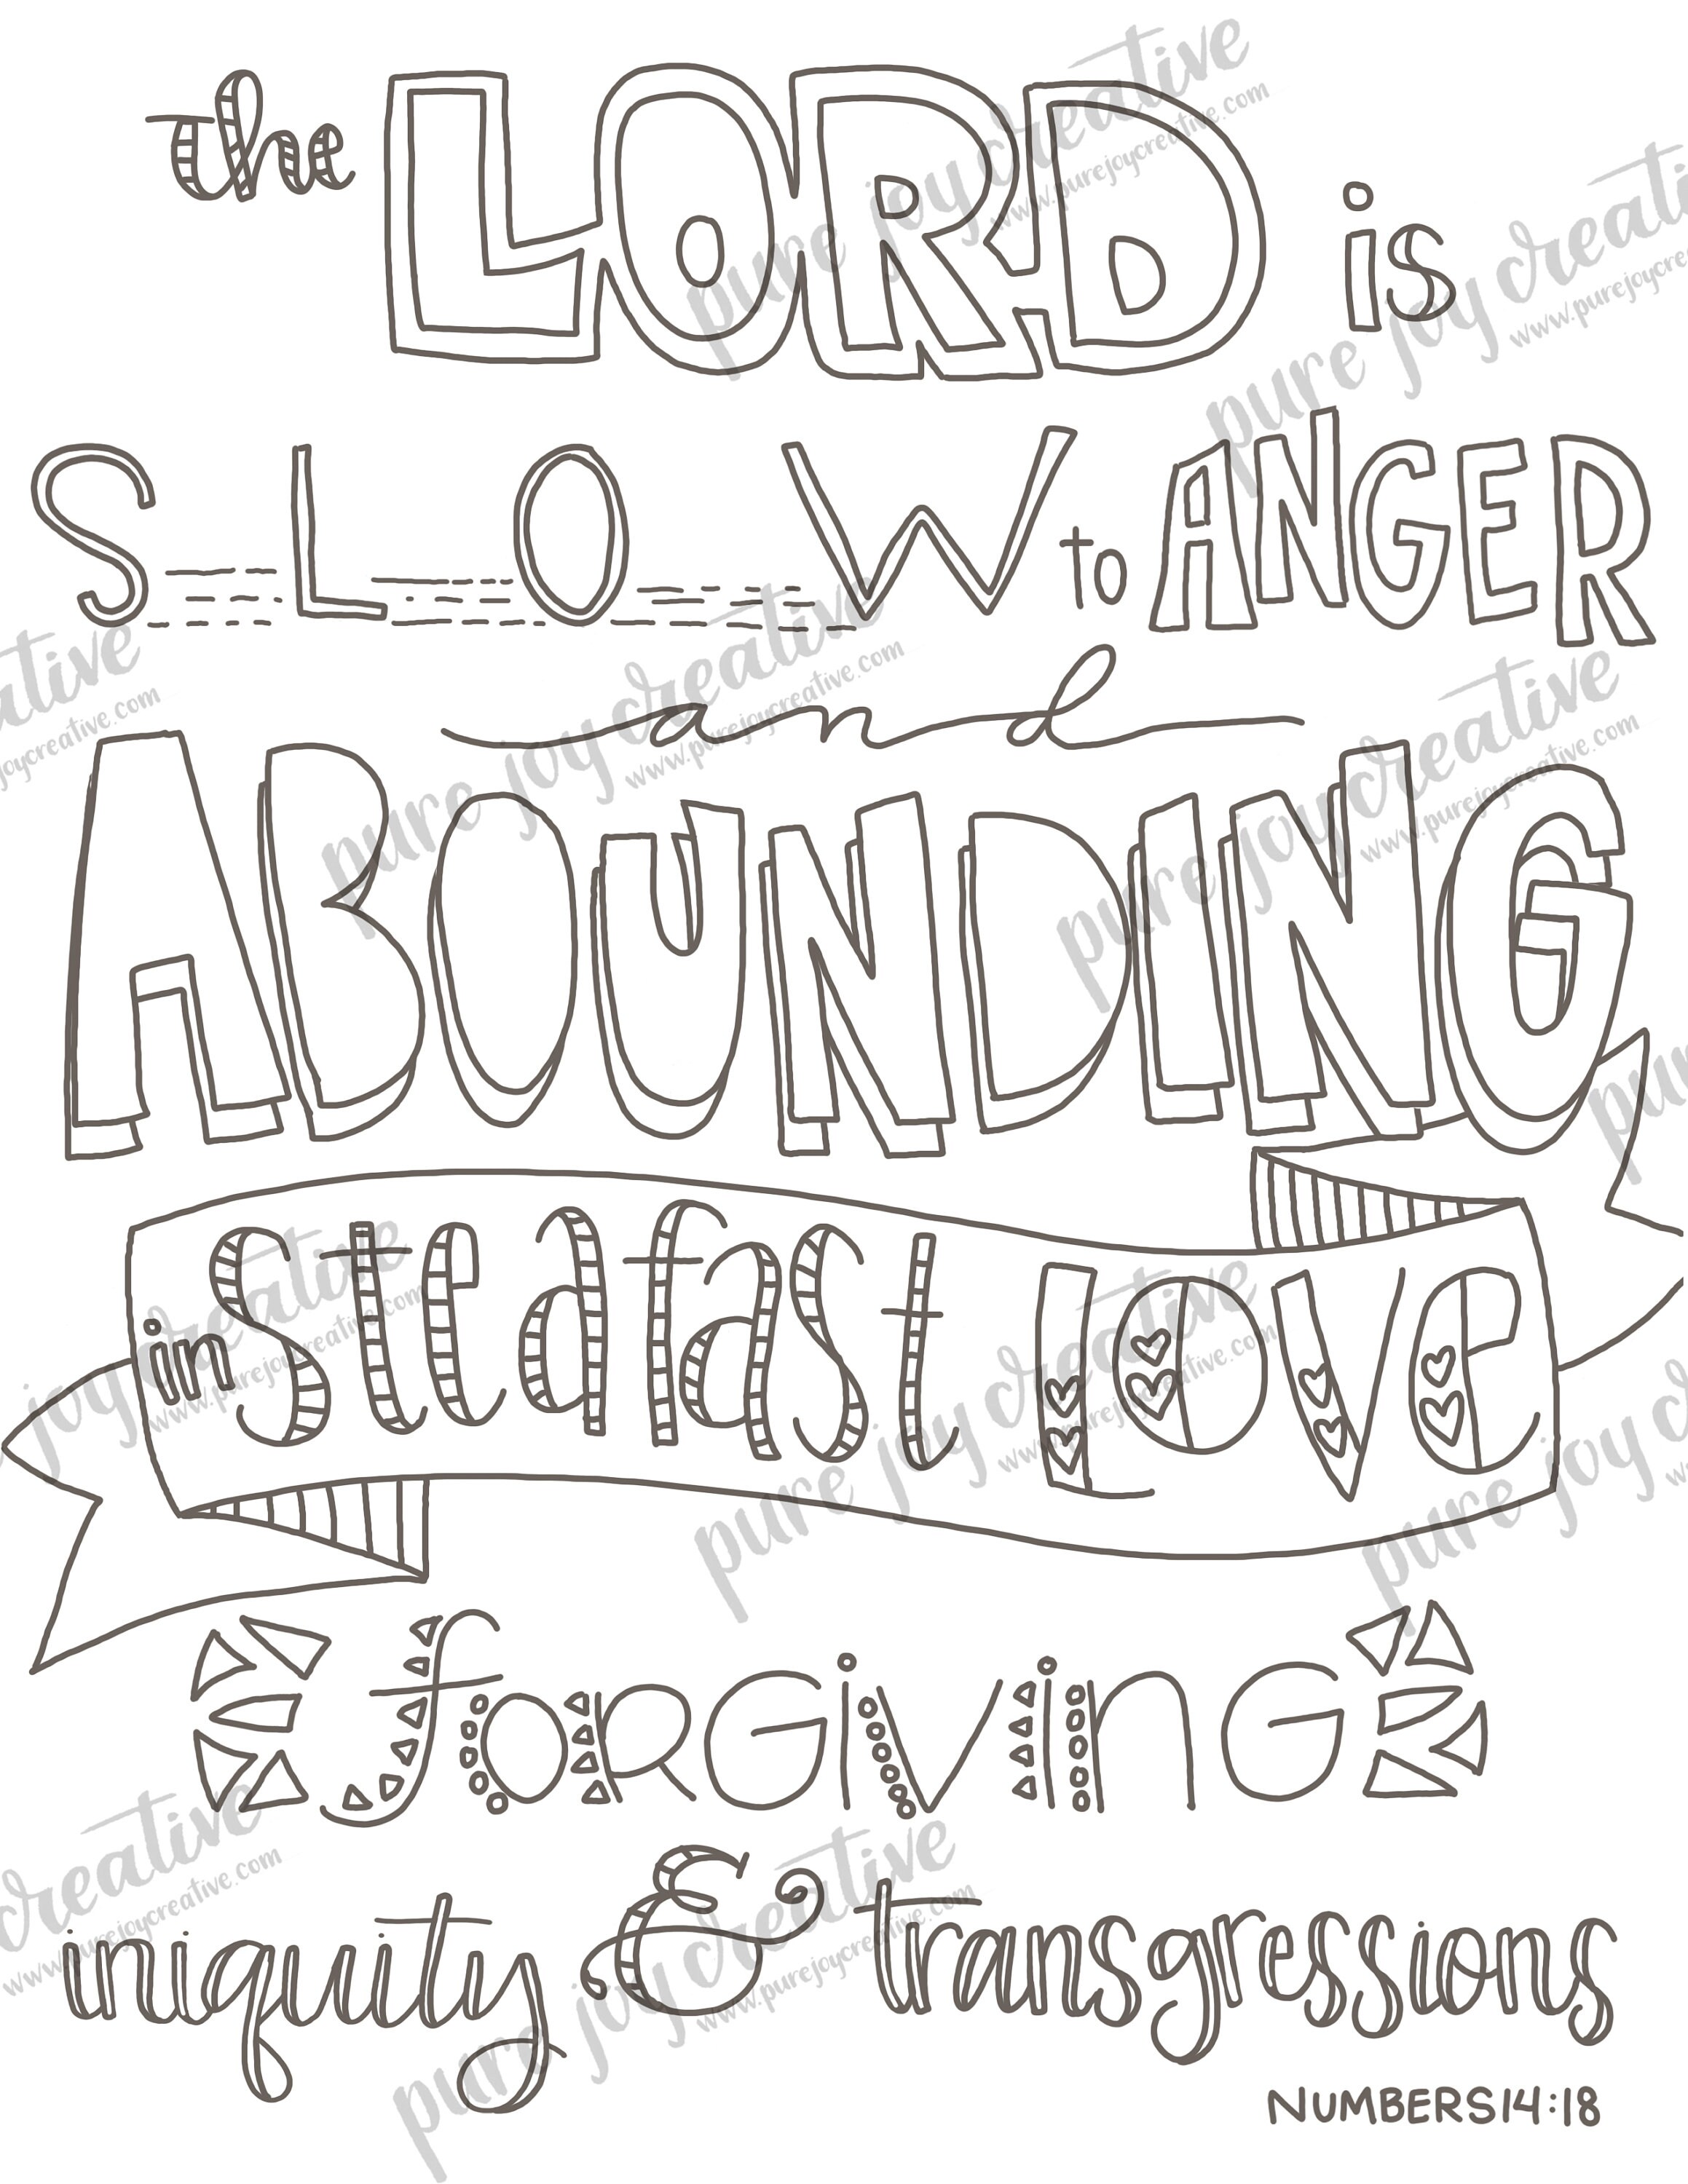 the LORD is
SLOW to ANGER
and
ABOUNDING
in steadfast love
forGiVinG
iniquity & transgressions
NUMBERS 14:18
pure joy creative
www.purejoycreative.com